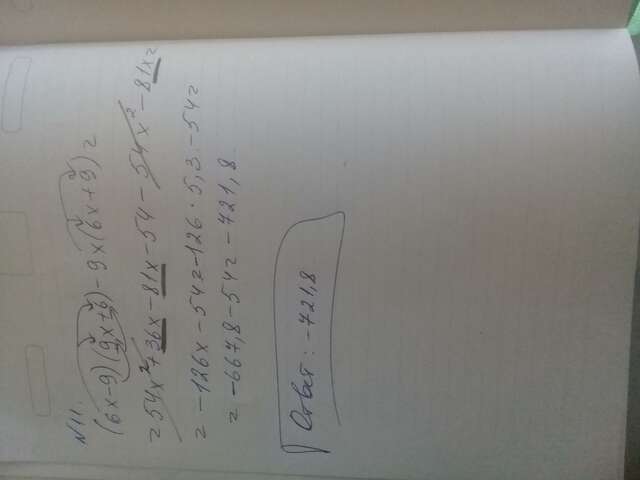 N11.
(6x-9)(9x+6)-9x(6x+9)=
=54x²+36x-81x-54-54x²-81x=
=-126x-54=-126·5,3-54=
=-667,8-54=-721,8
Ответ: -721,8